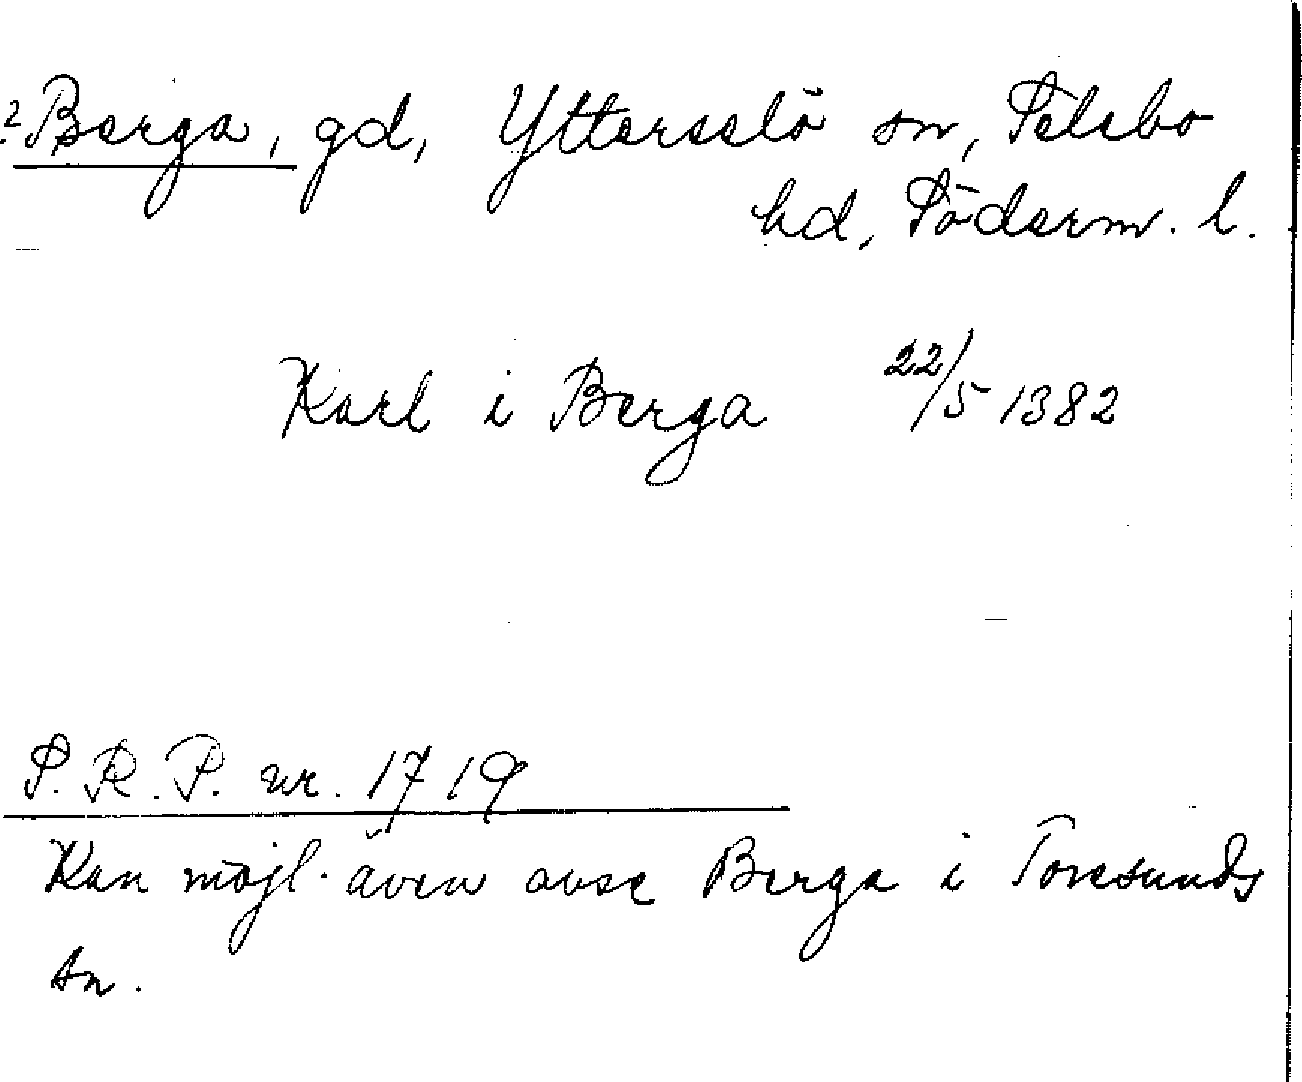 ? Berga, gd, Ytterselö sn, Selebo
hd, Söderm. l.
Karl i Berga 22/5 1382
S. R. P. nr. 1719
Kan möjl. även avse Berga i Toresunds
sn.